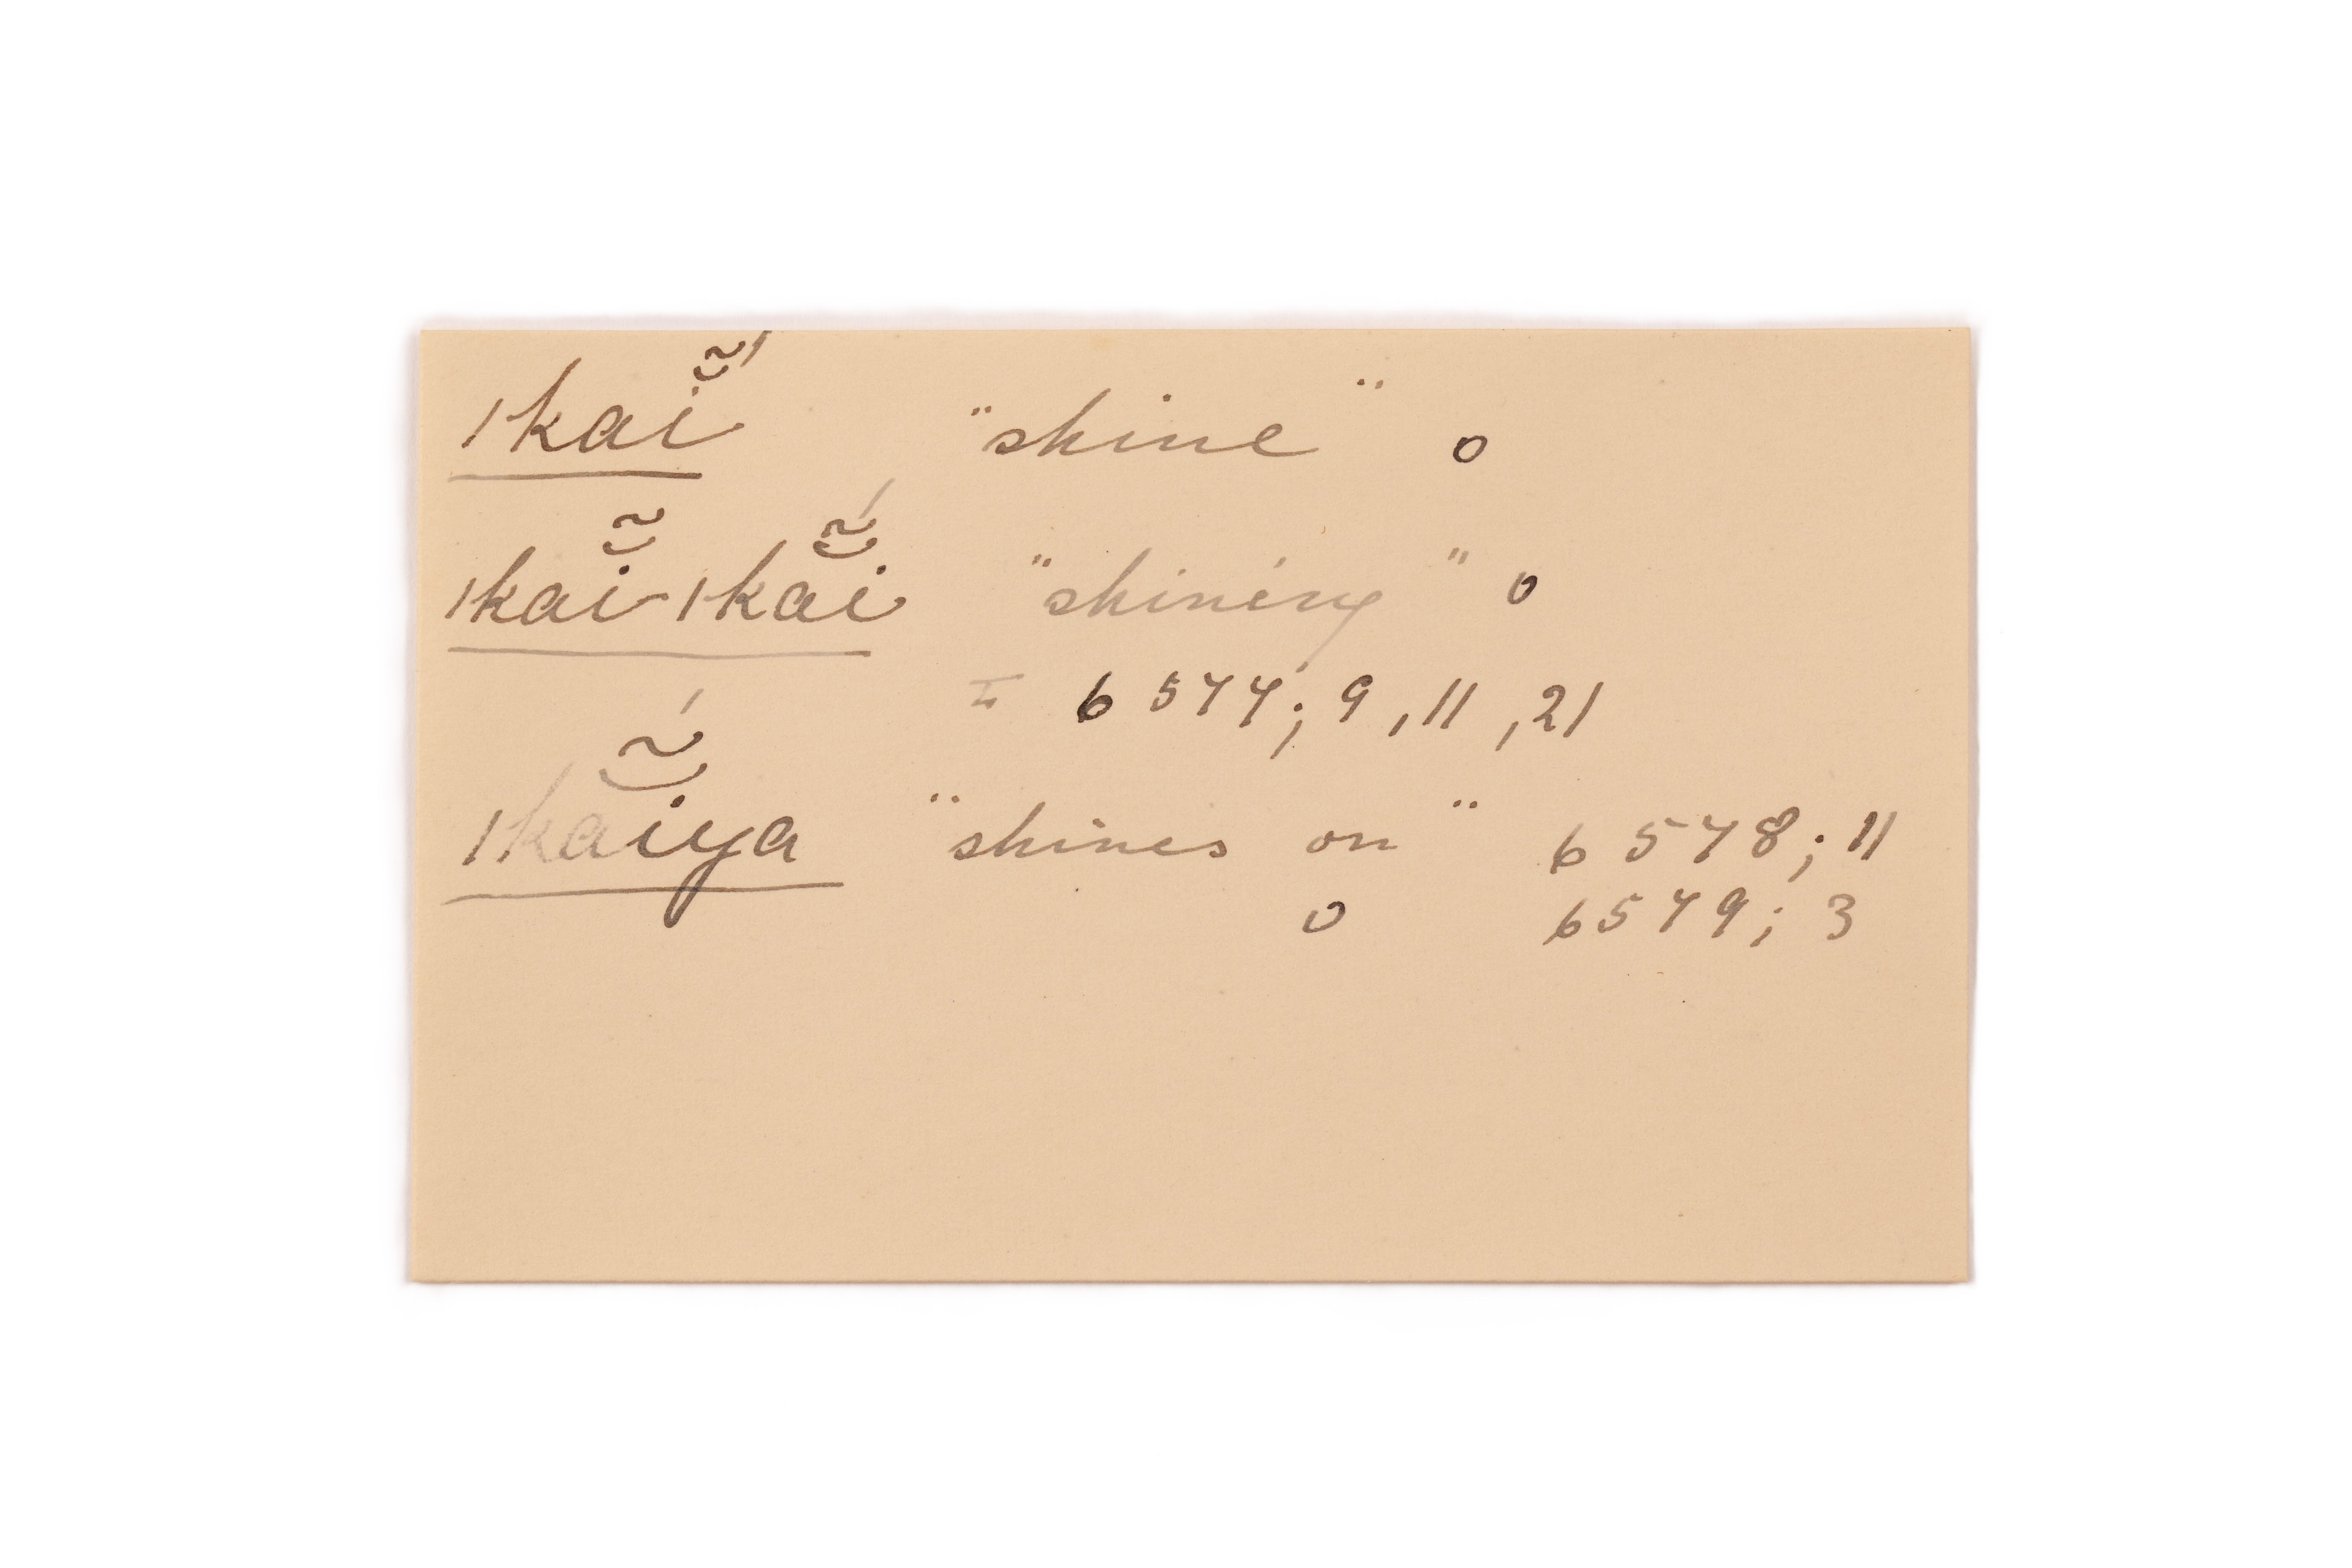 ǀkaĩ̆́ "shine" o
ǀkaĩ̆-ǀkaĩ̆́ "shining" o
6577; 9, 11, 21
ǀkaĩ̆́ya "shines on" 6578; 11
o 6579; 3